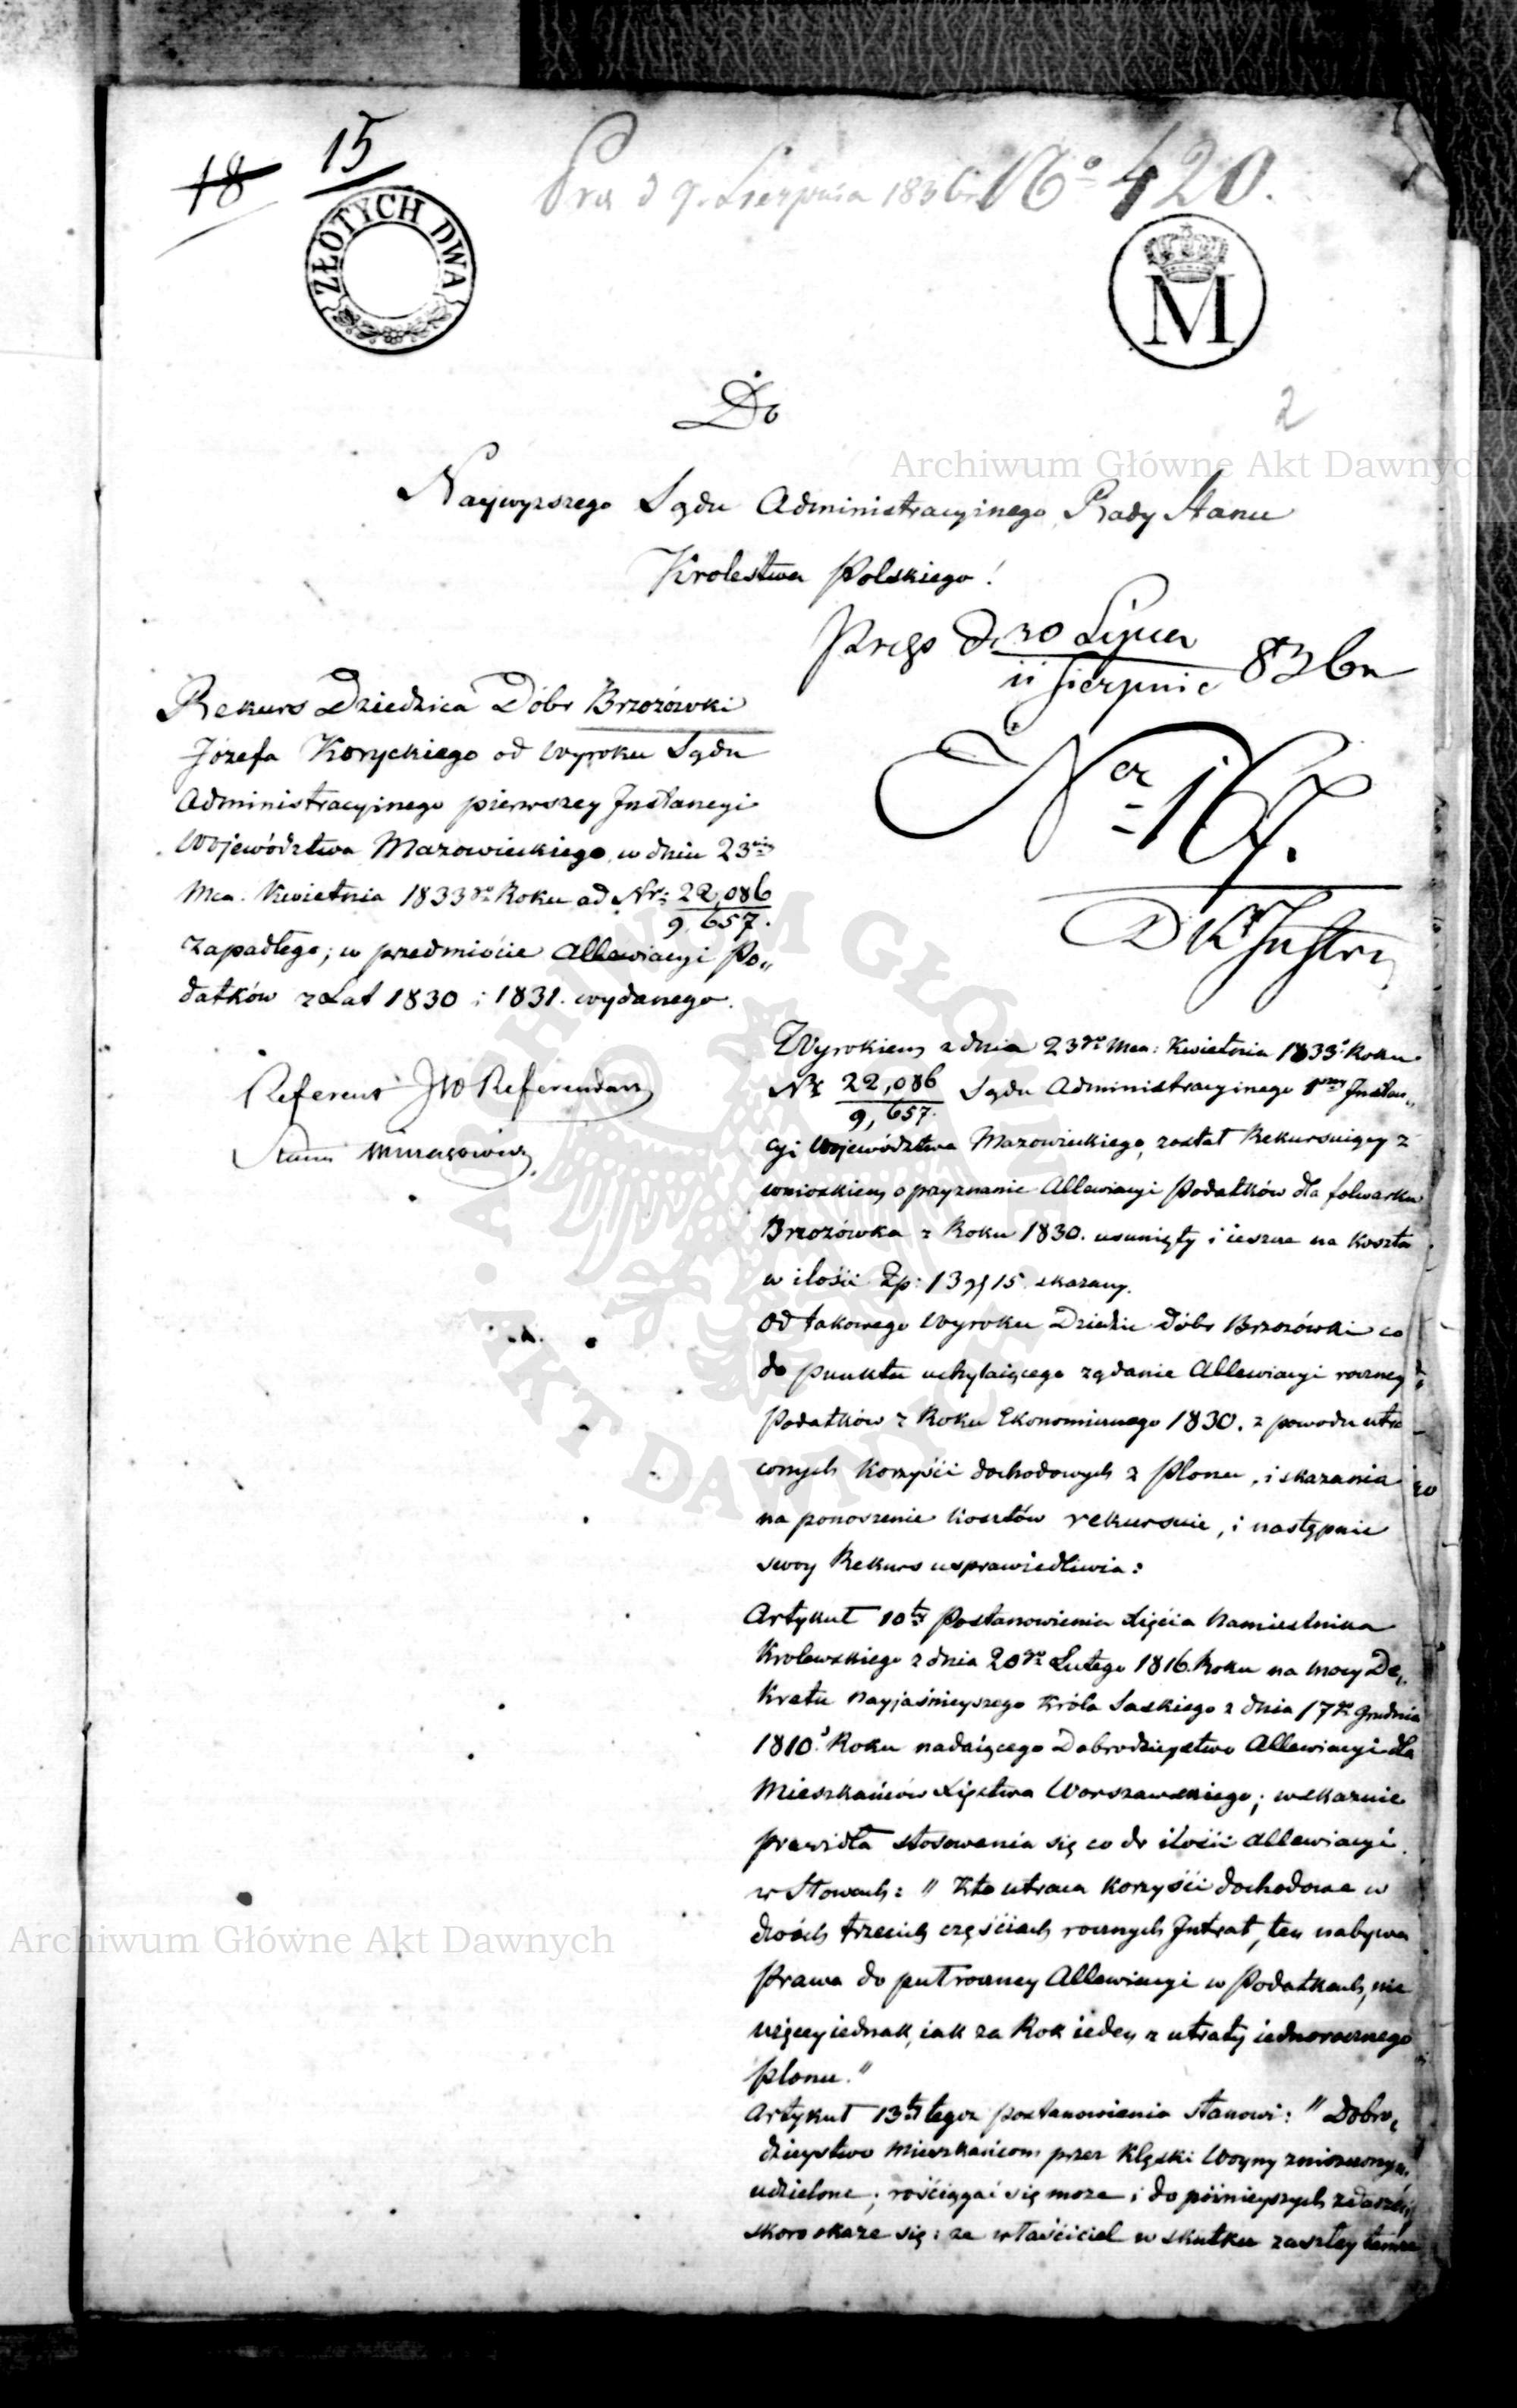 18 15
Pra d 9. Sierpnia 1836 r. No 420.
ZŁOTYCH DWA
M
2
Do
Naywyzszego Sądu Administracyinego Rady Stanu
Krolestwa Polskiego!
d. 30 Lipca
11 Sierpnia 836 r
Rekurs Dziedzica Dóbr Brzozówki
Józefa Koryckiego od Wyroku Sądu
Administracyinego pierwszey Instancyi
Województwa Mazowieckiego, w dniu 23
Mca. Kwietnia 1833 go Roku ad Nr: 22,086
9,657.
Zapadłego; w przedmiocie Allewiacyi Po„
datków z Lat 1830 i 1831. wydanego.
Ner 167.
Referent JW Referendarz
Stanu
Wyrokiem z dnia 23go Mca: Kwietnia 1833 Roku
Nr 22,086
9,657. Sądu Administracyinego 1szey Instan„
cyi Województwa Mazowieckiego, został Rekursuiący z
wnioskiem o przyznanie Allewiacyi Podatków dla folwarku
Brzozówka z Roku 1830. usunięty i ieszcze na koszta
w ilości Zp: 13 gr 15. skazany.
Od takowego Wyroku Dziedzic Dóbr Brzozówki co
do punktu uchylaiącego żądanie Allewiacyi roczney
Podatków z Roku Ekonomicznego 1830. z powodu utra
conych korzyści dochodowych z Plonu, i skazania
na ponoszenie kosztów rekursuie, i następnie
swoy Rekurs usprawiedliwia:
Artykuł 10ty Postanowienia Xięcia Namiestnika
Krolewskiego z dnia 20go Lutego 1816. Roku na mocy De„
kretu Nayjaśnieyszego Króla Saskiego z dnia 17go Grudnia
1810. Roku nadaiącego Dobrodzieystwo Allewiacyi dla
Mieszkańców Xięstwa Warszawskiego; wskazuie
prawidła stosowania się co do ilości allewiacyi
w Słowach: „Kto utraca korzyści dochodowe w
dwóch trzecich częściach rocznych Intrat, ten nabywa
Prawa do puł roczney Allewiacyi w Podatkach, nie
więcey iednak, iak za Rok ieden z utraty iednorocznego
plonu."
Artykuł 13ty tegoż postanowienia stanowi: „Dobro„
dzieystwo Mieszkańcom przez Klęski Woyny zniszczonym
udzielone, rościągać się moze i do późnieyszych zdarzeń,
skoro okaze się: ze właściciel w skutku zaszłey
Archiwum Główne Akt Dawnych
Archiwum Główne Akt Dawnych
ARCHIWUM GŁÓWNE AKT DAWNYCH